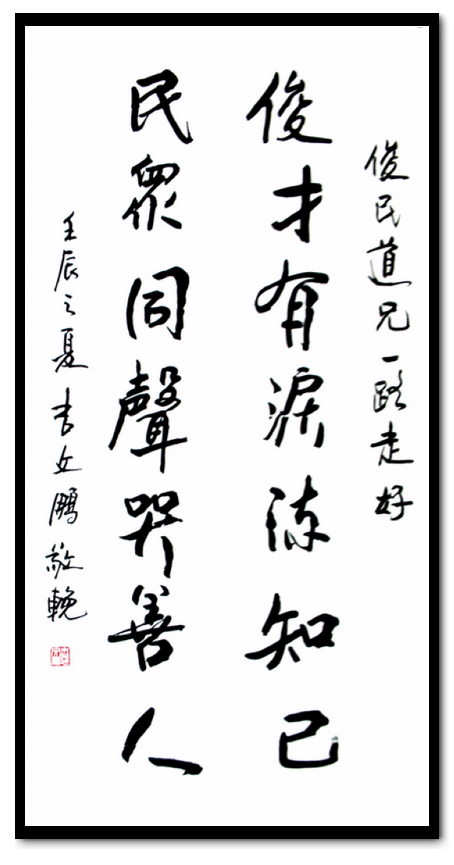 俊民道兄一路走好
俊才有淚誄知己
民眾同聲哭善人
壬辰之夏李文鵬敬輓